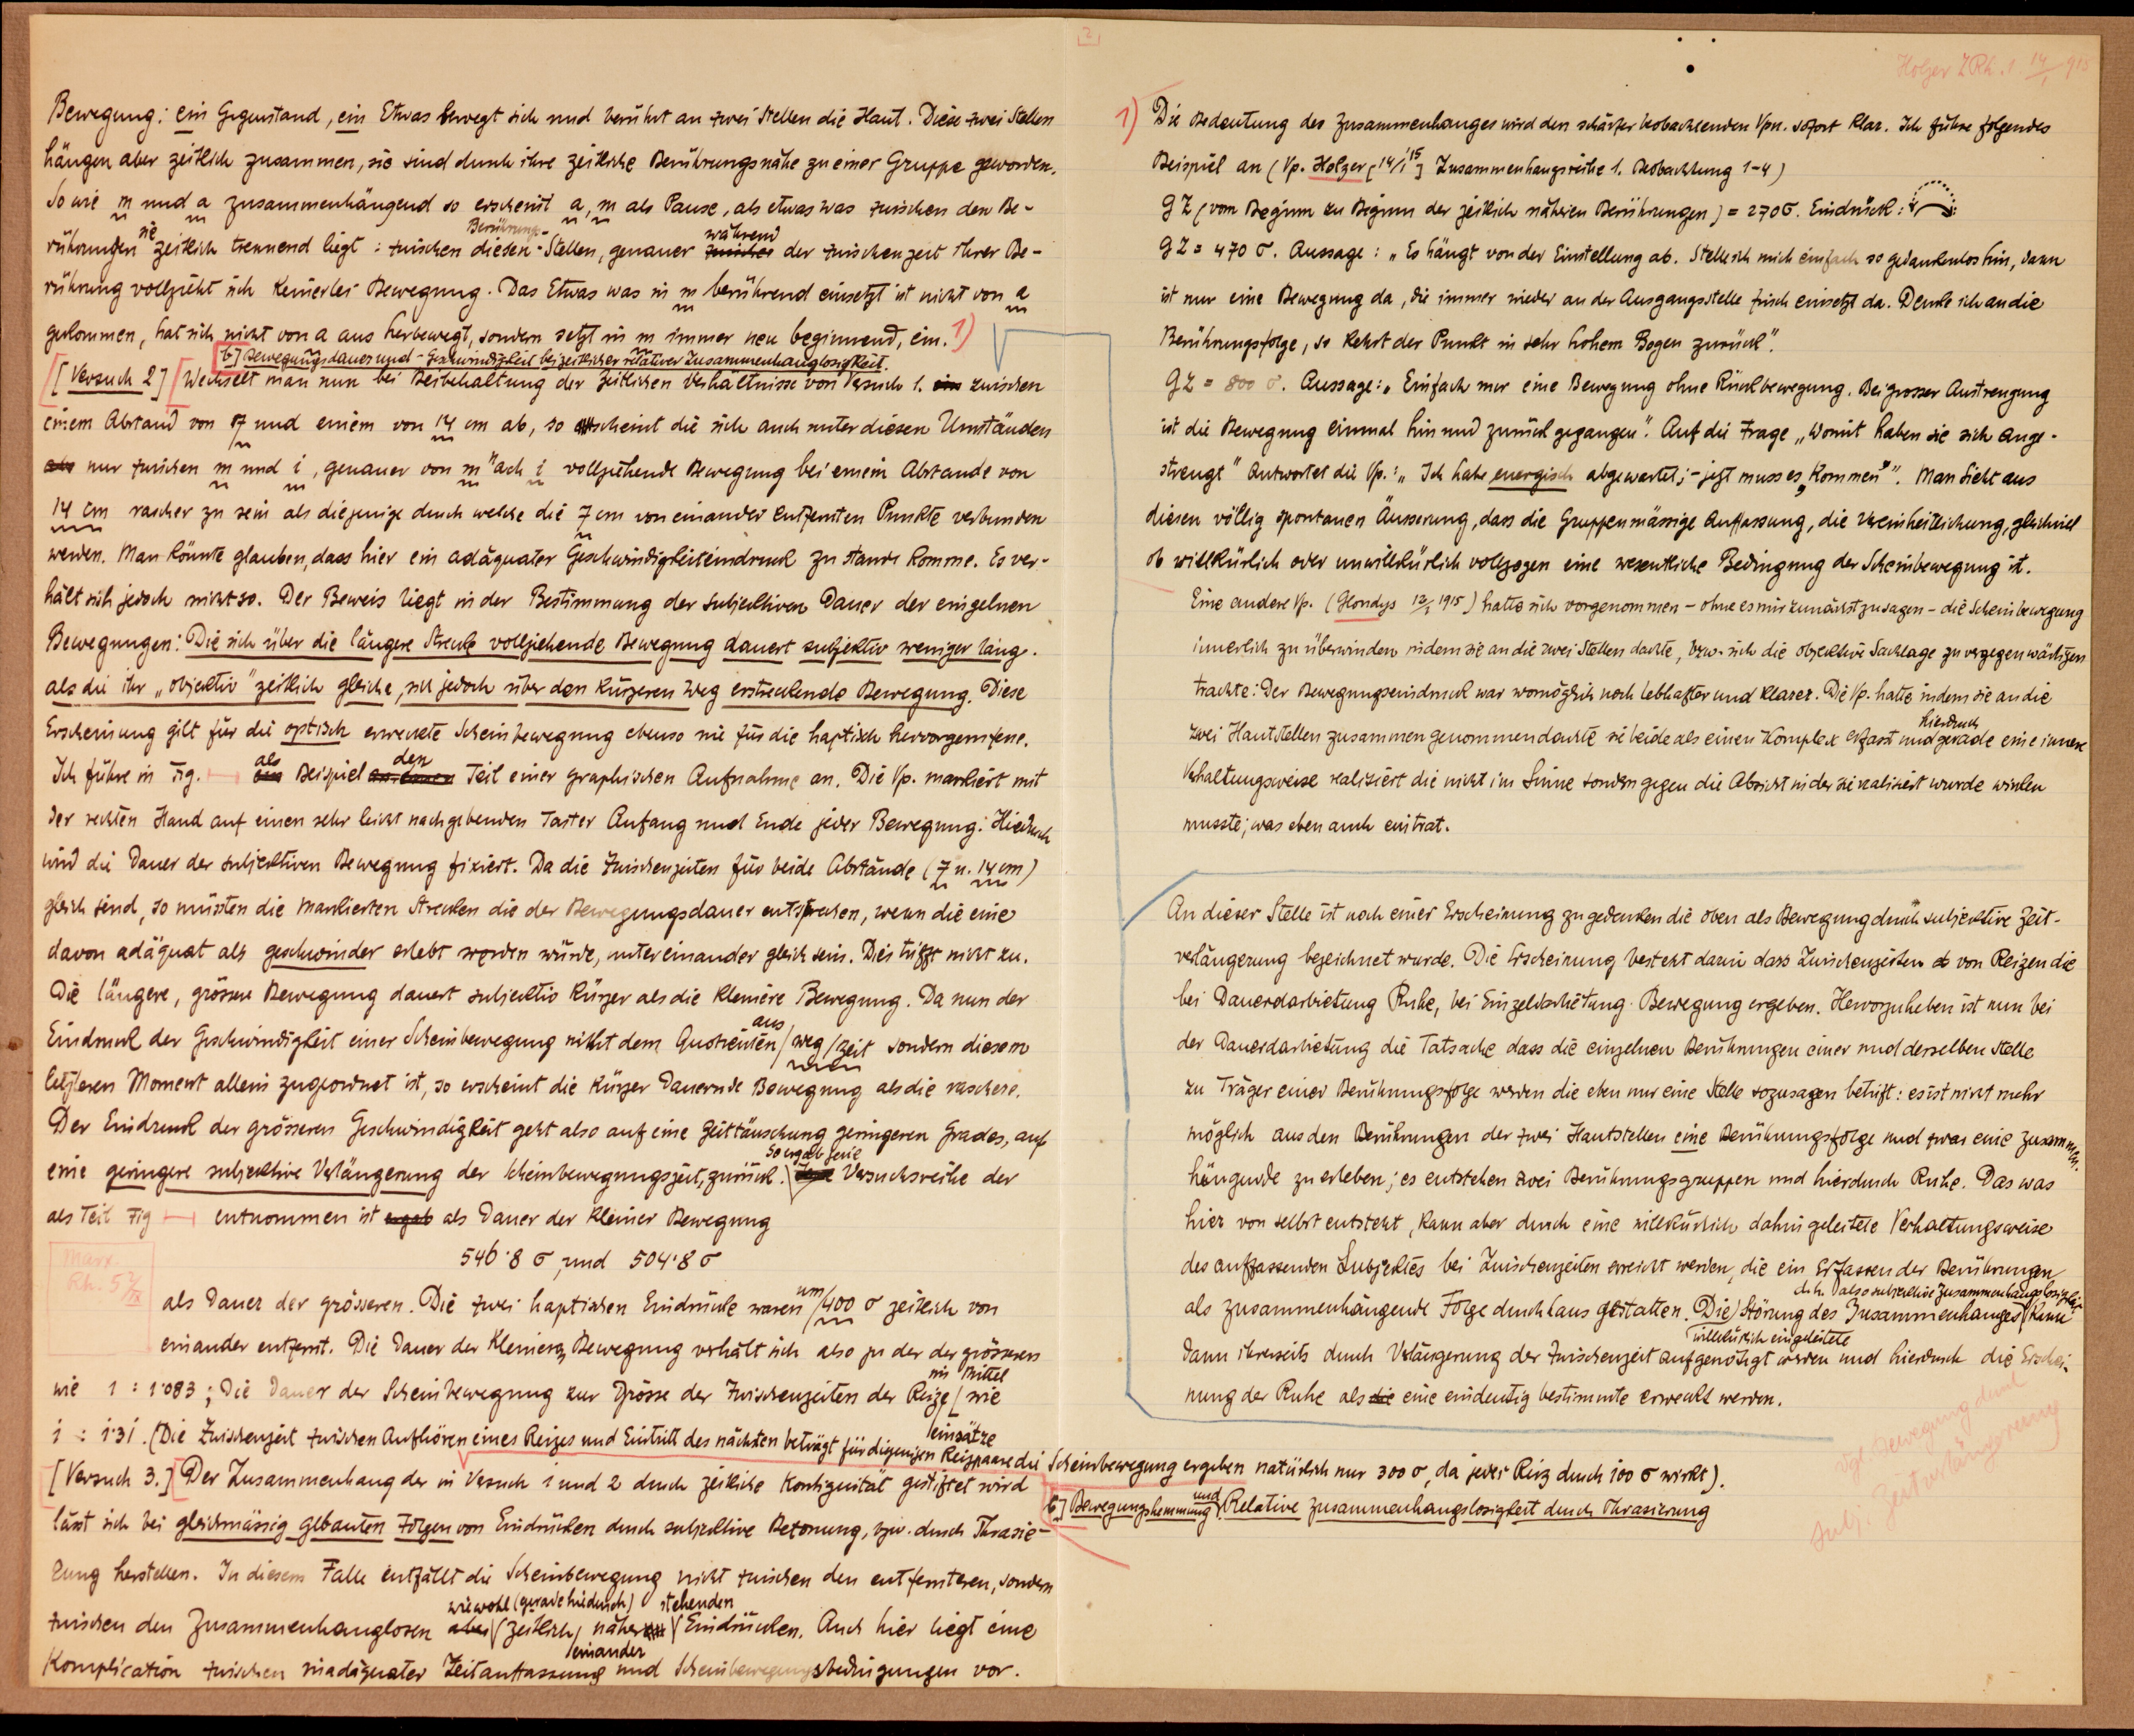 Bewegung: ein Gegenstand, ein Etwas bewegt sich und berührt an zwei Stellen die Haut. Diese zwei Stellen
hängen aber zeitlich zusammen, sie sind durch ihre zeitliche Berührungsnähe zu einer Gruppe geworden.
So wie m und a zusammenhängend so erscheint a, m als Pause, als etwas was zwischen den Be-
rührungen sie zeitlich trennend liegt: zwischen diesen Berührungs-Stellen, genauer zwischen während der Zwischenzeit ihrer Be-
rührung vollzieht sich keinerlei Bewegung. Das Etwas was in m berührend einsetzt ist nicht von a
gekommen, hat sich nicht von a aus herbewegt, sondern setzt in m immer neu beginnend, ein. 1)
b] Bewegungsdauer und -Geschwindigkeit bei zeitlicher relativer Zusammenhanglosigkeit.
[Versuch 2] [Wechselt man nun bei Beibehaltung der zeitlichen Verhältnisse von Versuch 1. ein zwischen
einem Abstand von 7 und einem von 14 cm ab, so scheint die sich auch unter diesen Umständen
also nur zwischen m und i, genauer von m nach i vollziehende Bewegung bei einem Abstande von
14 cm rascher zu sein als diejenige durch welche die 7 cm voneinander entfernten Punkte verbunden
werden. Man könnte glauben, dass hier ein adäquater Geschwindigkeiteindruck zu stande komme. Es ver-
hält sich jedoch nicht so. Der Beweis liegt in der Bestimmung der subjektiven Dauer der einzelnen
Bewegungen: Die sich über die längere Strecke vollziehende Bewegung dauert subjektiv weniger lang.
als die ihr „objektiv" zeitlich gleiche, sich jedoch über den kürzeren Weg erstreckende Bewegung. Diese
Erscheinung gilt für die optisch erweckte Scheinbewegung ebenso wie für die haptisch hervorgerufene.
Ich führe in Fig. als Beispiel den Teil einer graphischen Aufnahme an. Die Vp. markiert mit
der rechten Hand auf einen sehr leicht nachgebenden Taster Anfang und Ende jeder Bewegung. Hiedurch
wird die Dauer der subjektiven Bewegung fixiert. Da die Zwischenzeiten für beide Abstände (7 u. 14 cm)
gleich sind, so müssten die markierten Strecken die der Bewegungsdauer entsprechen, wenn die eine
davon adäquat als geschwinder erlebt worden würde, untereinander gleich sein. Dies trifft nicht zu.
Die längere, grössere Bewegung dauert subjectiv kürzer als die kleinere Bewegung. Da nun der
Eindruck der Geschwindigkeit einer Scheinbewegung nicht dem Quotienten aus / Weg / Zeit sondern diesem
letzteren Moment allein zugeordnet ist, so erscheint die kürzer dauernde Bewegung als die raschere.
Der Eindruck der grösseren Geschwindigkeit geht also auf eine Zeittäuschung geringeren Grades, auf
eine geringere subjektive Verlängerung der Scheinbewegungszeit, zurück. So ergab jene Versuchsreihe der
als Teil Fig entnommen ist ergab als Dauer der kleiner Bewegung
546·8 σ, und 504·8 σ
Marx.
Rh. 5
als Dauer der grösseren. Die zwei haptischen Eindrücke waren um / 400 σ zeitlich von
einander entfernt. Die Dauer der kleineren Bewegung verhält sich also zu der der grösseren
wie 1 : 1·083; Die Dauer der Scheinbewegung zur Grösse der Zwischenzeiten der Reize / im Mittel wie
1 : 1·31. (Die Zwischenzeit zwischen Aufhören eines Reizes und Eintritt des nächsten beträgt für diejenigen Reizpaare einsätze die Scheinbewegung ergeben natürlich nur 300 σ, da jeder Reiz durch 100 σ wirkt).
[Versuch 3.] [Der Zusammenhang der in Versuch 1 und 2 durch zeitliche Kontiguität gestiftet wird
c] Bewegungshemmung und Relative Zusammenhangslosigkeit durch Phrasierung
lässt sich bei gleichmässig gebauten Folgen von Eindrücken durch subjektive Betonung, bzw. durch Phrasie-
rung herstellen. In diesem Falle entfällt die Scheinbewegung nicht zwischen den entfernteren, sondern
zwischen den Zusammenhanglosen aber wiewohl (gerade hiedurch) zeitlich / einander näher stehenden Eindrücken. Auch hier liegt eine
Komplication zwischen inadäquater Zeitauffassung und Scheinbewegungsbedingungen vor.
2
Holzer ZRh. 1. 14/I 915
1) Die Bedeutung des Zusammenhanges wird den schärfer beobachtenden Vpn. sofort klar. Ich führe folgendes
Beispiel an (Vp. Holzer [14/I 15] Zusammenhangsreihe 1. Beobachtung 1-4)
GZ (vom Beginn zu Beginn der zeitlich näheren Berührungen) = 270σ. Eindruck:
GZ = 470 σ. Aussage: „Es hängt von der Einstellung ab. Stelle ich mich einfach so gedankenlos hin, dann
ist nur eine Bewegung da, die immer wieder an der Ausgangsstelle frisch einsetzt da. Denke ich an die
Berührungsfolge, so kehrt der Punkt in sehr hohem Bogen zurück".
GZ = 800 σ. Aussage: „Einfach nur eine Bewegung ohne Rückbewegung. Bei grosser Anstrengung
ist die Bewegung einmal hin und zurück gegangen". Auf die Frage „Womit haben sie sich ange-
strengt" Antwortet die Vp.: „Ich habe energisch abgewartet; - jetzt muss es „kommen"". Man sieht aus
diesen völlig spontanen Äusserung, dass die Gruppenmässige Auffassung, die Vereinheitlichung, gleichviel
ob willkürlich oder unwillkürlich vollzogen eine wesentliche Bedingung der Scheinbewegung ist.
Eine andere Vp. (Glondys 12/I 1915) hatte sich vorgenommen - ohne es mir zunächst zu sagen - die Scheinbewegung
innerlich zu überwinden indem sie an die zwei Stellen dachte, bzw. sich die objektive Sachlage zu vergegenwärtigen
trachte: Der Bewegungseindruck war womöglich noch lebhafter und klarer. Die Vp. hatte indem sie an die
zwei Hautstellen zusammen genommen dachte sie beide als einen Komplex erfasst und hierdurch gerade eine innere
Verhaltungsweise realisiert die nicht im Sinne sondern gegen die Absicht in der sie realisiert wurde wirken
musste; was eben auch eintrat.
An dieser Stelle ist noch einer Erscheinung zu gedenken die oben als Bewegung durch subjektive Zeit-
verlängerung bezeichnet wurde. Die Erscheinung besteht darin dass Zwischenzeiten von Reizen die
bei Dauerdarbietung Ruhe, bei Einzeldarbietung Bewegung ergeben. Hervorzuheben ist nun bei
der Dauerdarbietung die Tatsache dass die einzelnen Berührungen einer und derselben Stelle
zu Träger einer Berührungsfolge werden die eben nur eine Stelle sozusagen betrifft: es ist nicht mehr
möglich aus den Berührungen der zwei Hautstellen eine Berührungsfolge und zwar eine zusammen-
hängende zu erleben; es entstehen zwei Berührungsgruppen und hierdurch Ruhe. Das was
hier von selbst entsteht, kann aber durch eine willkürlich dahin geleitete Verhaltungsweise
des auffassenden Subjektes bei Zwischenzeiten erreicht werden, die ein Erfassen der Berührungen
als zusammenhängende Folge durchaus gestatten. Die willkürlich eingeleitete Störung des Zusammenhanges d.h. also subjektive Zusammenhangslosigkeit kann
dann ihrerseits durch Verlängerung der Zwischenzeit aufgenötigt werden und hierdurch die Erschei-
nung der Ruhe als die eine eindeutig bestimmte erweckt werden.
vgl. Bewegung durch
subj. Zeitverlängerung